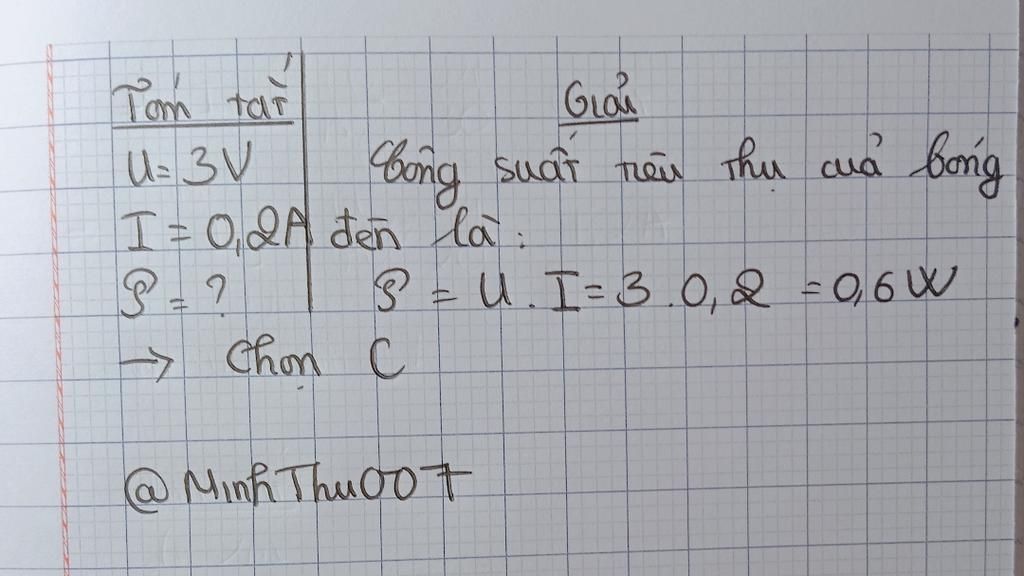 Tóm tắt
U = 3V
I = 0,2A
℘ = ?
Giải
Công suất tiêu thụ của bóng
đèn là :
℘ = U . I = 3 . 0,2 = 0,6 W
→ Chọn C
@MinhThu007